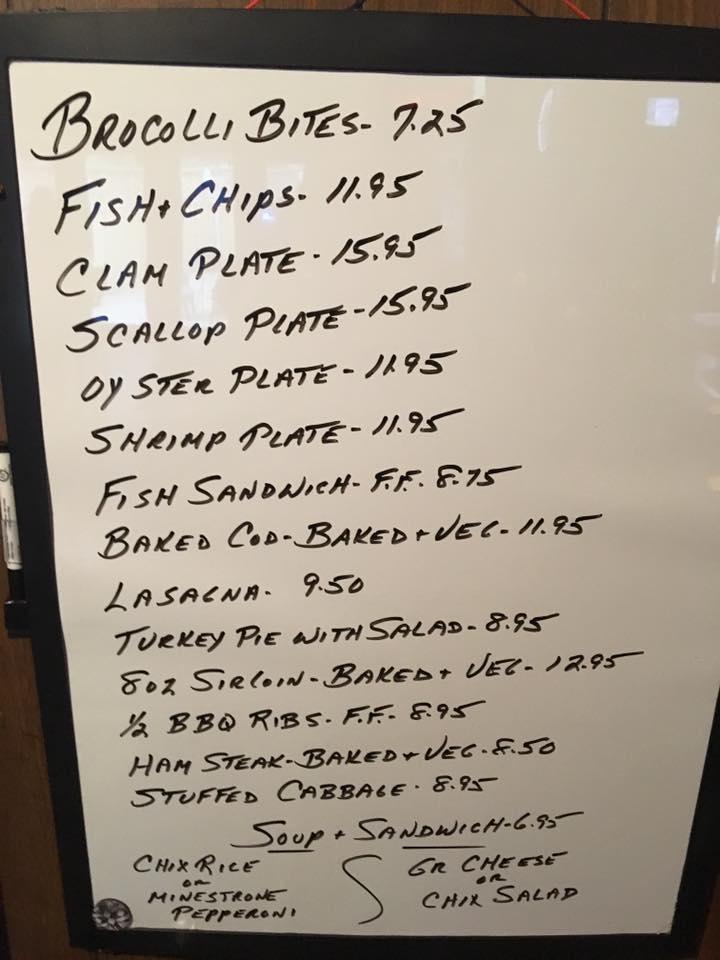 BROCOLLI BITES- 7.25
FISH + CHIPS- 11.95
CLAM PLATE - 15.95
SCALLOP PLATE - 15.95
OYSTER PLATE - 11.95
SHRIMP PLATE - 11.95
FISH SANDWICH- F.F. 8.75
BAKED COD- BAKED + VEG- 11.95
LASAGNA- 9.50
TURKEY PIE WITH SALAD- 8.95
8OZ SIRLOIN- BAKED + VEG- 12.95
1/2 BBQ RIBS- F.F.- 8.95
HAM STEAK- BAKED + VEG- 8.50
STUFFED CABBAGE- 8.95
SOUP + SANDWICH- 6.95
CHIX RICE
OR
MINESTRONE
PEPPERONI
GR CHEESE
OR
CHIX SALAD